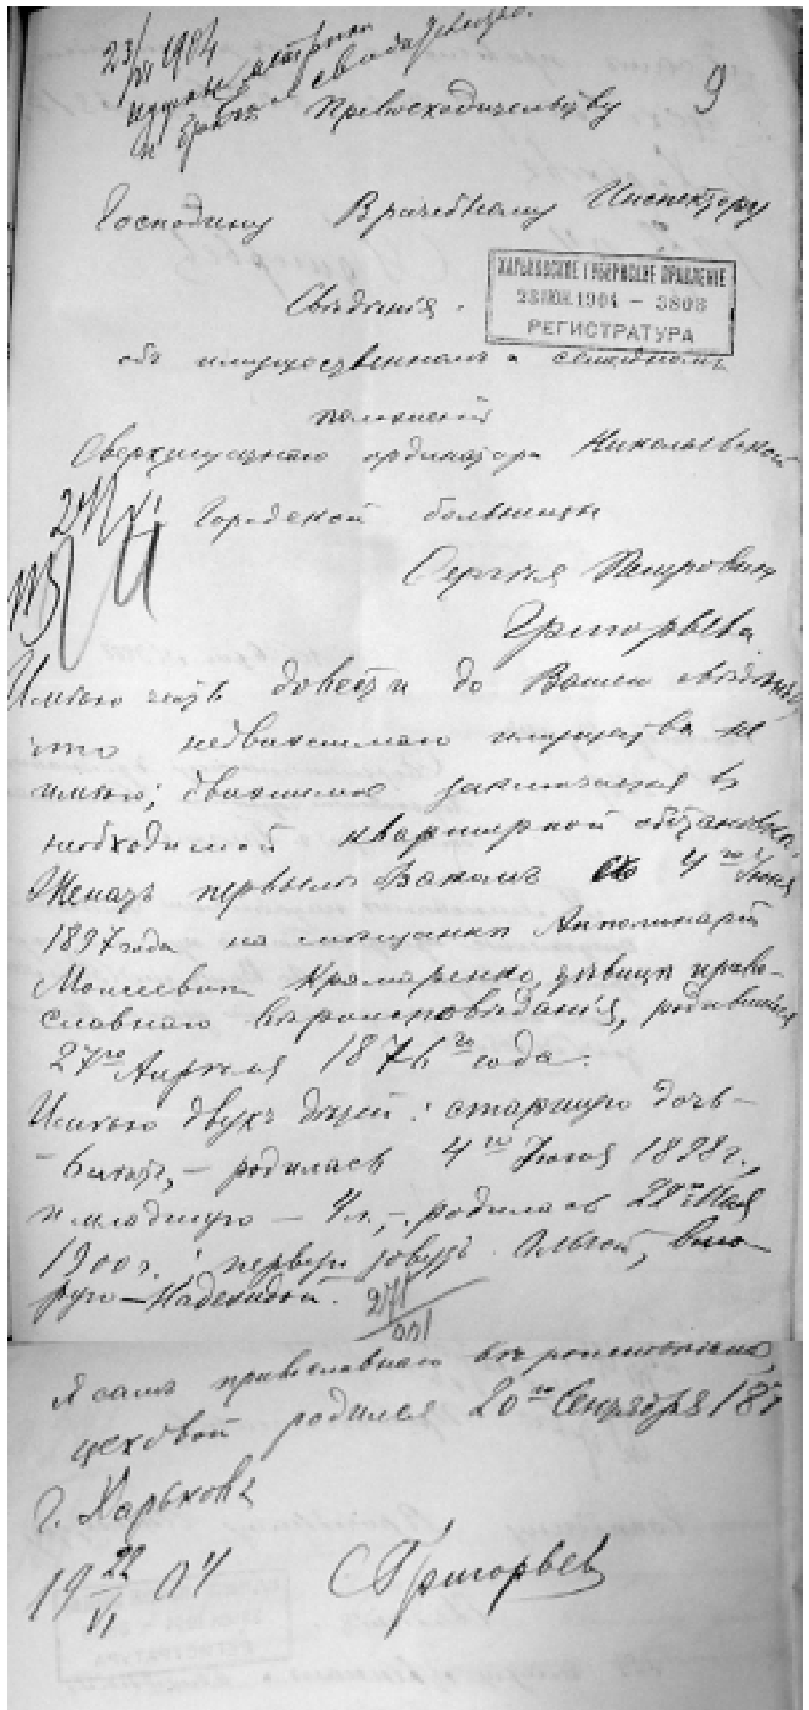 23/VI 1904
нужны метрики
о бракѣ и свидѣт.
9
Превосходительству
Господину Врачебному Инспектору
ХАРЬКОВСКОЕ ГУБЕРНСКОЕ ПРАВЛЕНІЕ
23 ІЮН. 1904 — 3808
РЕГИСТРАТУРА
Свѣдѣнія
объ имущественномъ и семейномъ
положеніи
Сверхштатнаго ординатора Николаевской
Городской больницы
Сергѣя Петровича
Григорьева
Имѣю честь довести до Вашего свѣдѣнія,
что недвижимаго имущества не
имѣю; движимое заключается въ
необходимой квартирной обстановкѣ.
Женатъ первымъ бракомъ съ 4го Іюня
1897 года на мѣщанкѣ Апполинаріи
Моисеевнѣ Крамаренко, дѣвицѣ право-
славнаго вѣроисповѣданія, родившейся
27го Апрѣля 1876го года.
Имѣю двухъ дѣтей: старшую дочь —
— 6 лѣтъ, — родилась 4го Іюня 1898 г.,
и младшую — 4 л., — родилась 22го Мая
1900 г.: первую зовутъ, вто-
рую — Надеждой.
Я самъ православнаго вѣроисповѣданія,
цеховой родился 20го Сентября 187
г. Харьковъ
19 22/VI 04
С Григорьев